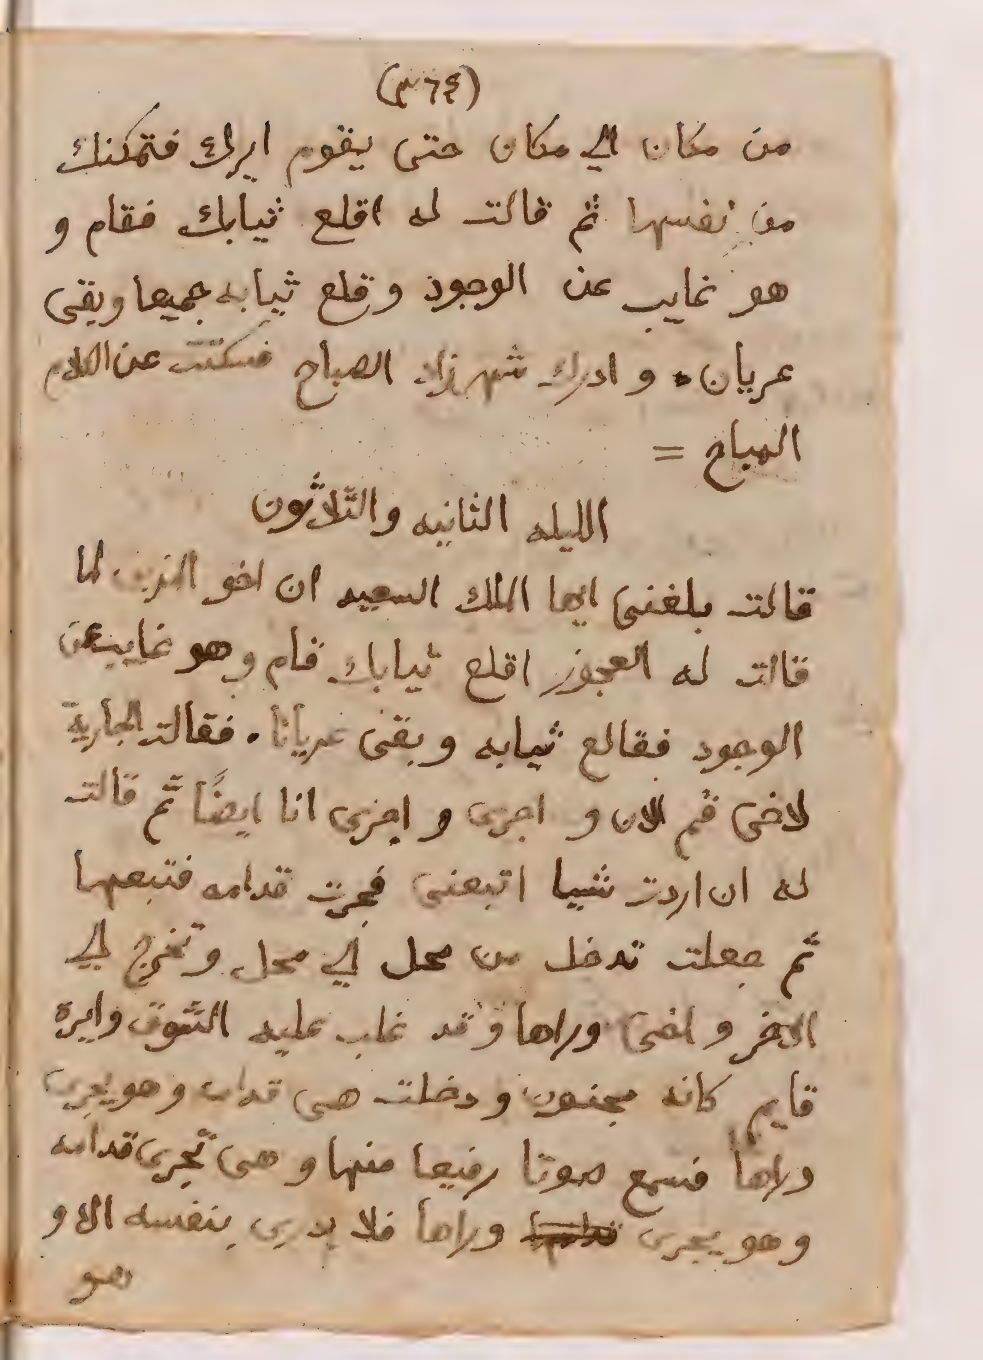 (٣٦٤)
من مكان الي مكان حتى يقوم ايرك فتمكنك
من نفسها ثم قالت له اقلع ثيابك فقام و
هو غايب عن الوجود وقلع ثيابه جميعا وبقى
عريان • و ادرك شهرزاد الصباح فسكتت عن الكلام
المباح =
الليله الثانيه والثلاثون
قالت بلغنى ايها الملك السعيد ان اخو المزين لما
قالت له العجوز اقلع ثيابك قام وهو غايب عن
الوجود فقالع ثيابه وبقى عريانا • فقالت الجارية
لاخى قم الان و اجرى و اجرى انا ايضًا ثم قالت
له ان اردت شيا اتبعنى فجرت قدامه فتبعها
ثم جعلت تدخل من محل الي محل وتخرج الي
الاخر و اخى وراها وقد غلب عليه الشوق وايره
قايم كانه مجنون ودخلت هى قدامه وهو يجرى
وراها فسمع صوتا رفيعا منها و هى تجرى قدامه
وهو يجرى قدامها وراها فلا يدرى بنفسه الا و
هو